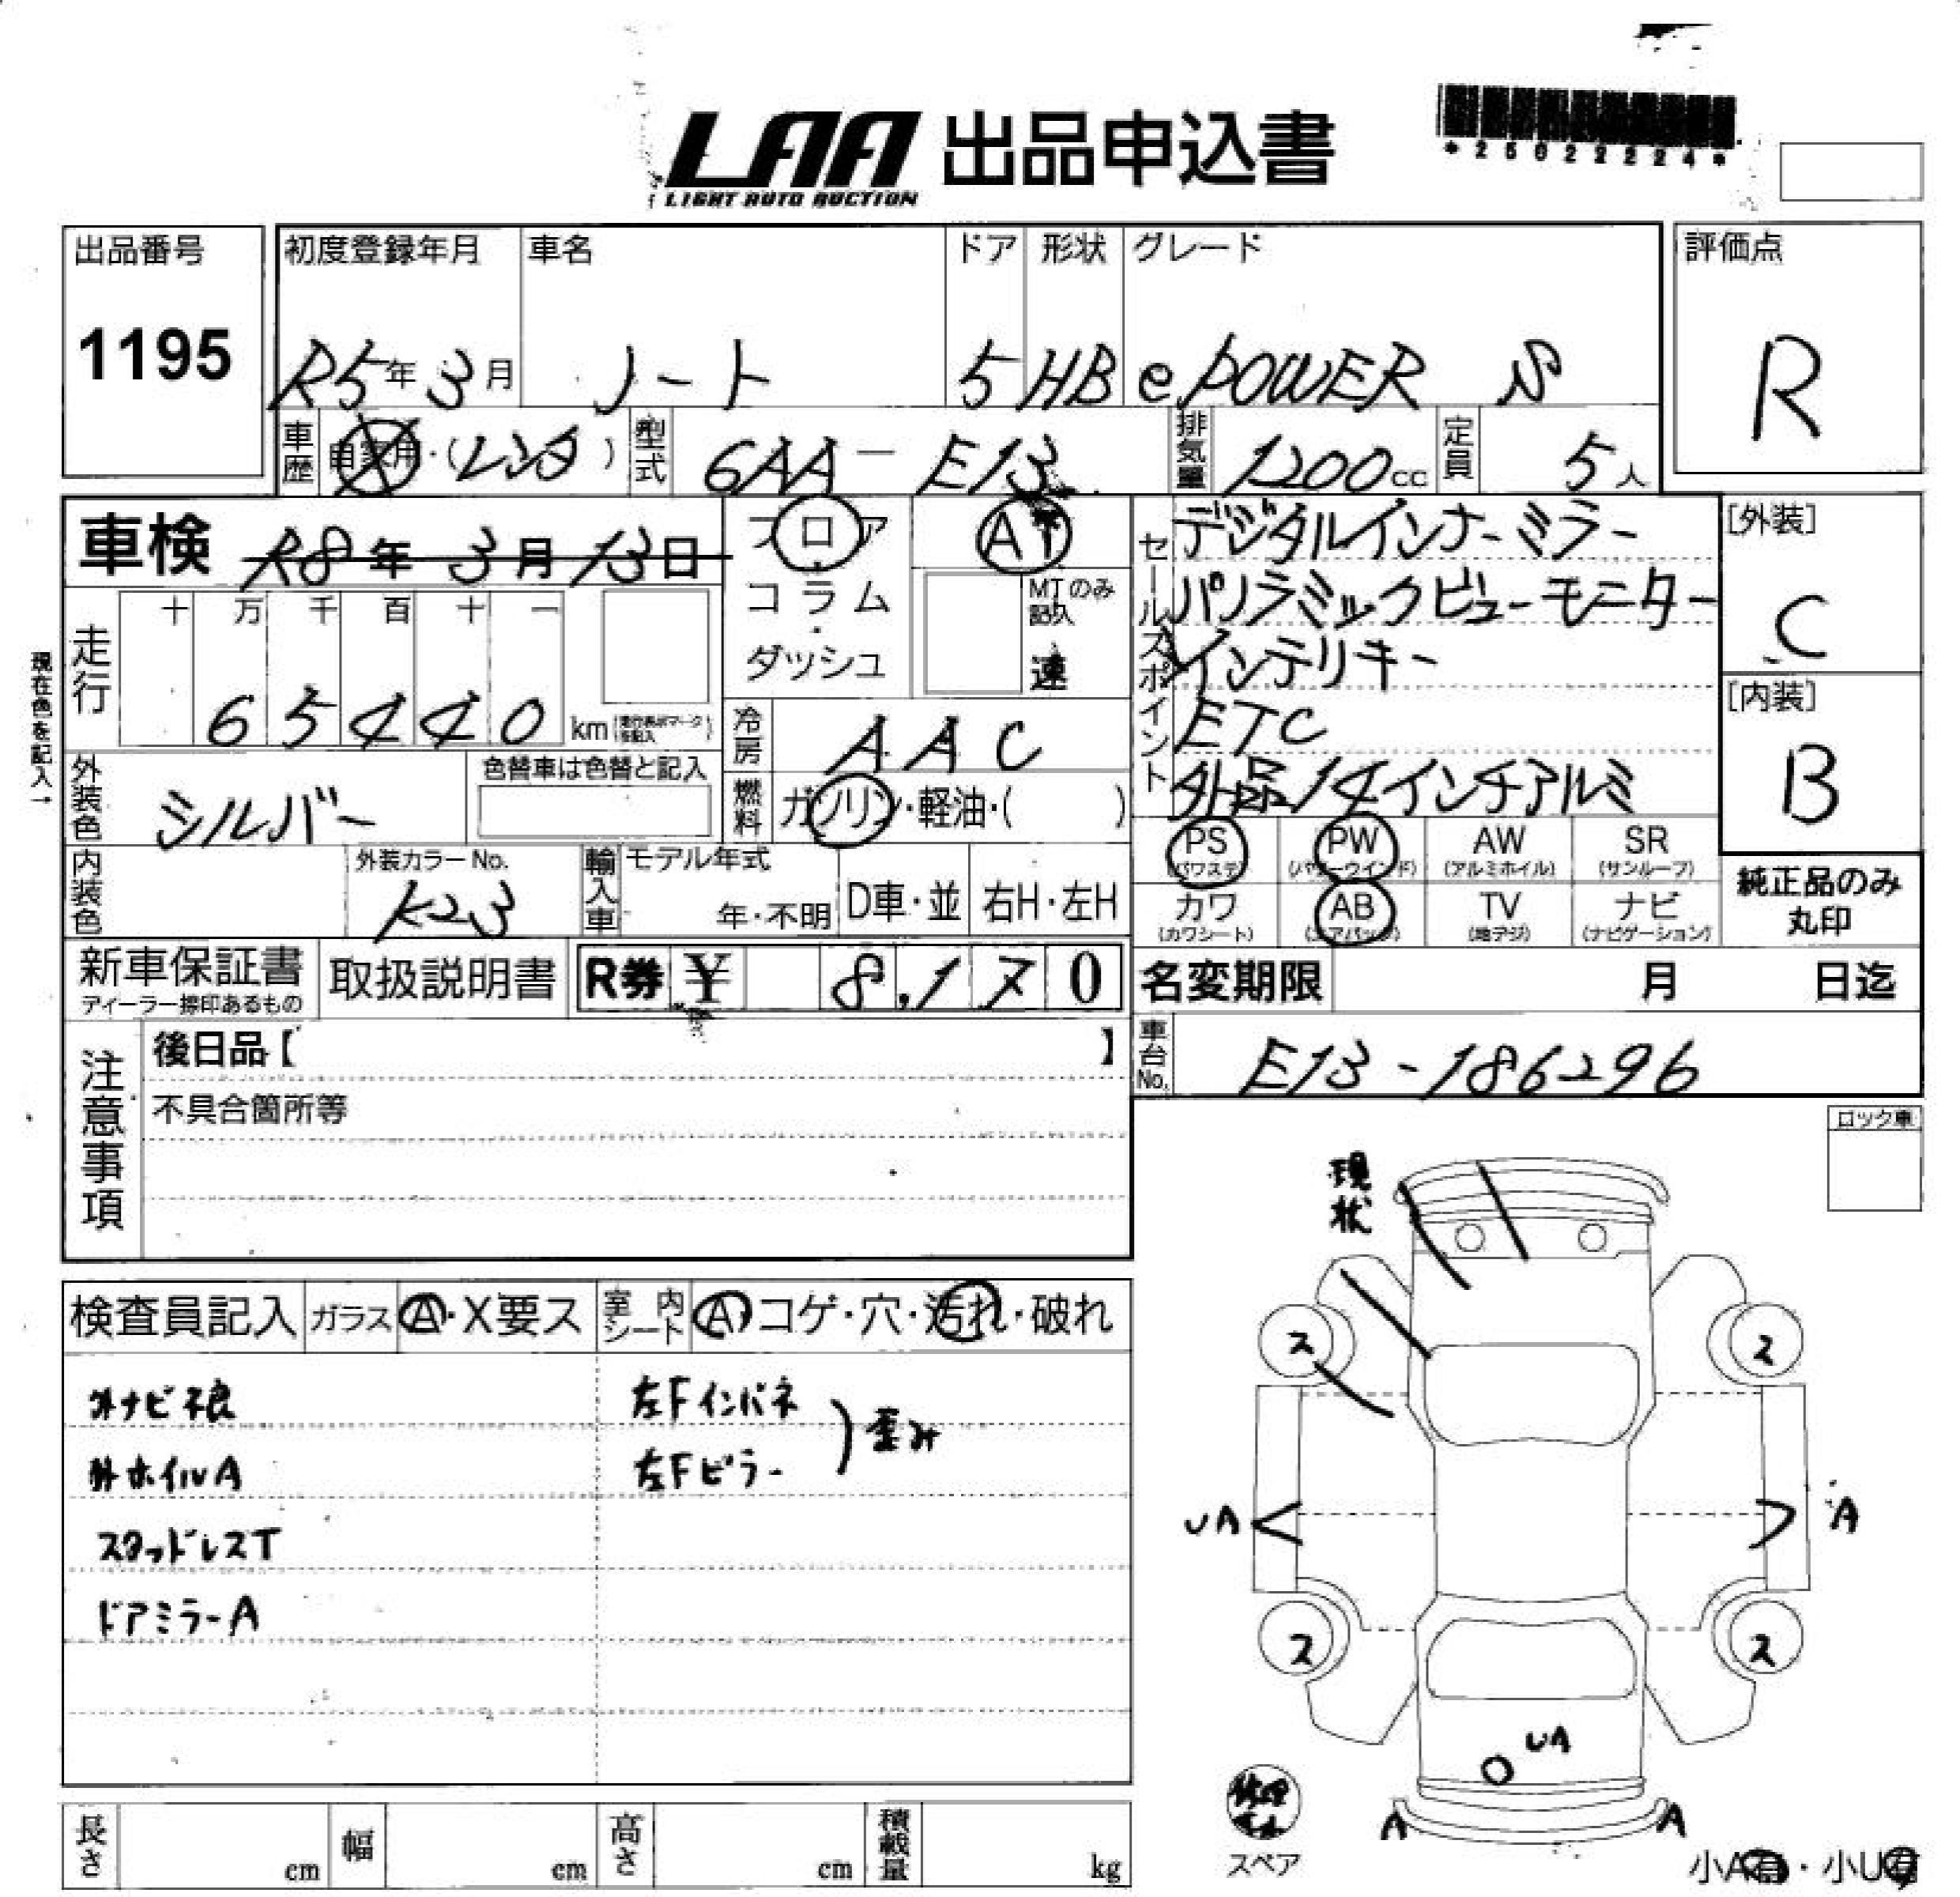 LAA 出品申込書
LIGHT AUTO AUCTION
*25022224*
出品番号 初度登録年月 車名 ドア 形状 グレード 評価点
1195 R5年 3月 ノート 5 HB e POWER S R
車歴 自家用・(レンタ) 型式 6AA-E13 排気量 1200cc 定員 5人
車検 R8年 3月 13日
フロア・コラム・ダッシュ
AT
MTのみ記入
速
現在色を記入→
走行 十 万 千 百 十 一
65440 km
セールスポイント
デジタルインナーミラー
パノラミックビューモニター
インテリキー
ETC
外品14インチアルミ
[外装]
C
[内装]
B
冷房 AAC
外装色 シルバー 色替車は色替と記入
燃料 ガソリン・軽油・( )
PS (パワステ) PW (パワーウインド) AW (アルミホイル) SR (サンルーフ)
カワ (カワシート) AB (エアバッグ) TV (地デジ) ナビ (ナビゲーション)
純正品のみ
丸印
内装色 外装カラーNo. K23 輸入車 モデル年式 年・不明 D車・並 右H・左H
新車保証書 取扱説明書 R券 ¥ 8,170 名変期限 月 日迄
ディーラー捺印あるもの
車台No. E13-186296
注意事項
後日品【 】
不具合箇所等
ロック車
現状
検査員記入 ガラス A・X要ス 室内シート A・コゲ・穴・汚れ・破れ
外ナビ不良 左Fインパネ
外ホイルA 左Fピラー 歪み
スタッドレスT
ドアミラーA
ス ス
UA A
ス ス
UA
A A
スペア
小A有・小U有
長さ cm 幅 cm 高さ cm 積載量 kg